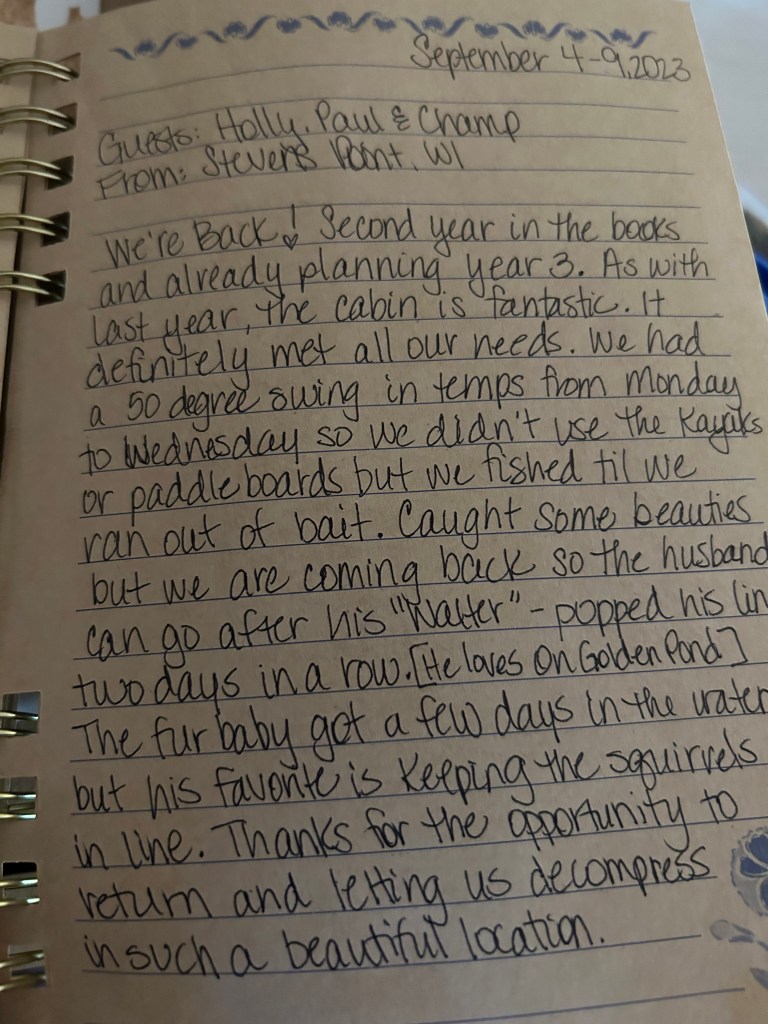 September 4-9, 2023
Guests: Holly, Paul & Champ
From: Stevens Point, WI
We're Back! Second year in the books
and already planning year 3. As with
last year, the cabin is fantastic. It
definitely met all our needs. We had
a 50 degree swing in temps from Monday
to Wednesday so we didn't use the Kayaks
or paddle boards but we fished til we
ran out of bait. Caught some beauties
but we are coming back so the husband
can go after his "Walter" - popped his lin
two days in a row. [He loves On Golden Pond]
The fur baby got a few days in the water
but his favorite is keeping the squirrels
in line. Thanks for the opportunity to
return and letting us decompress
in such a beautiful location.